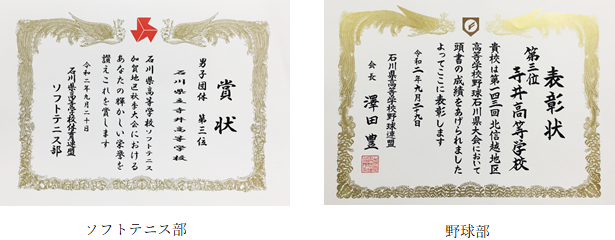 賞状
男子団体 第三位
石川県立寺井高等学校
石川県高等学校ソフトテニス
加賀地区秋季大会における
あなたの輝かしい栄誉を
讃えこれを賞します
令和二年九月二十日
石川県高等学校体育連盟
ソフトテニス部
ソフトテニス部
表彰状
第三位
寺井高等学校
貴校は第一四三回北信越地区
高等学校野球石川県大会において
頭書の成績をあげられました
よってここに表彰します
令和二年九月二十九日
石川県高等学校野球連盟
会長 澤田豊
野球部